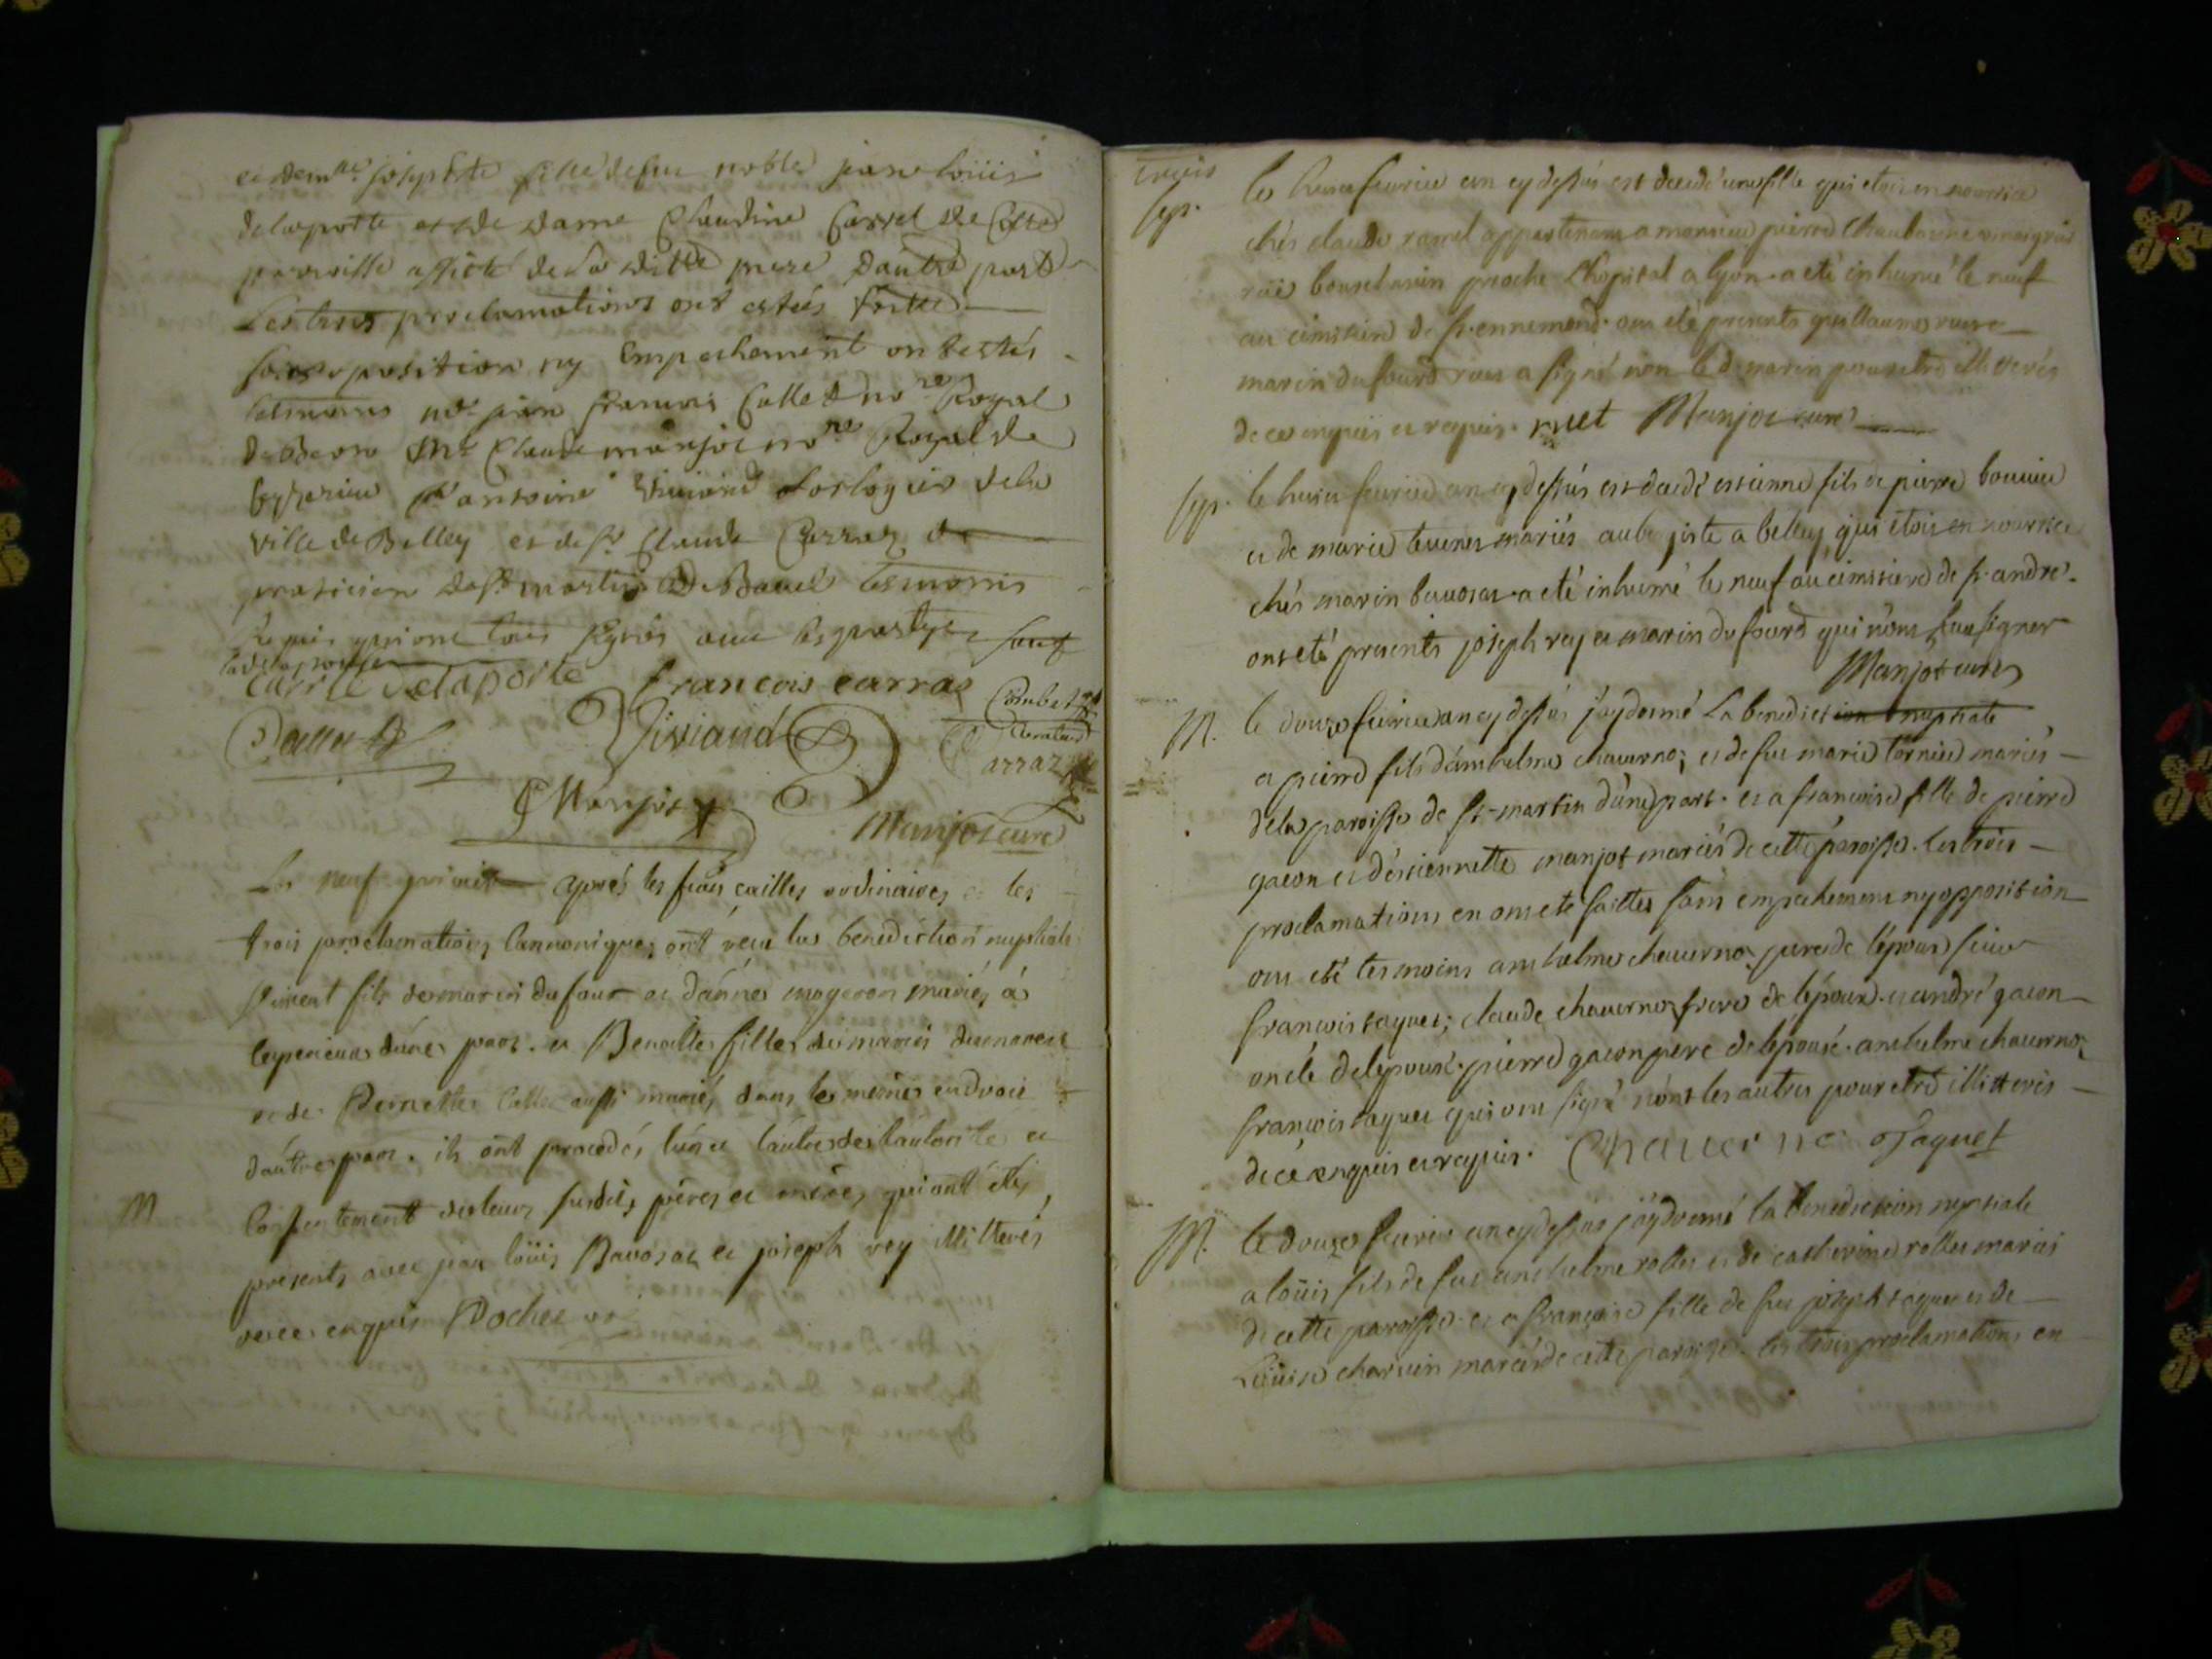 et dem.lle josephte fille de feu noble jean loüis
delaporte et de dame Claudine Carrel de Cette
parroisse assisté de La ditte mere d'autre part
Les trois proclamations ont estées faitte
sans oposition ny Empechement on testés
tesmoins m.e jean francois Callet no.re Royal
de Me Claude manjot no.re Royal de
Ceyzerieu s.r antoine Viviand horlogier de la
ville de Belley et de s.r Claude Carraz
praticien de s.t martin de Bavel tesmoins
Requis qui ont tous signés avec les partyes sauf
Carrel Delaporte francois carraz
Callet Viviand
Carraz
C Manjot
Manjot curé
Le neuf après les fiançailles ordinaires et les
trois proclamations Cannoniques ont reçu la benediction nuptiale
vincent fils de marin dufour et d'anne mariés à
d'une part. et Benoitte fille de mariés
et de Pernette aussi mariés dans le meme endroit
d'autre part. ils ont procedés l'un et l'autre de l'autorite et
M consentement de leurs susdits pères et mères, qui ont étés
presents avec jean loüis Bavosat et joseph rey illitterés
de ce enquis Rochet
Sep. le huit feurier an cy dessus est decedé une fille qui etoit en nourrice
chés claude ravel appartenant a monsieur pierre Chaubonne vinaigrier
rüe bourchanin proche L'hopital a lyon. a eté inhumé le neuf
au cimitiere de st. ennemond. ont eté presents guillaume ruet
marin dufourd ruet a signé non led. marin pour etre illitterés
de ce enquis et requis. ruet Manjot curé
Sep. le huit feurier an cy dessus est decedé estienne fils de pierre bouuier
et de marie teuenet mariés aubergiste a belley, qui etoit en nourrice
chés marin bauosat a eté inhumé le neuf au cimitiere de st. andré.
ont eté presents joseph rey et marin dufourd qui n'ont sçu signer
Manjot curé
M. le douze feurier an cy dessus j'ay donné La benediction nuptiale
a pierre fils d'anthelme chauerno; et de feu marie tornier mariés
de la paroisse de st-martin d'une part. et a francoise fille de pierre
gacon et d'estiennette manjot mariés de cette paroisse. les trois
proclamations en ont eté faittes sans empechement ny opposition
ont eté tesmoins anthelme chauerno, pere de l'époux sieur
francois taquet; claude chauerno frere de l'époux. et andré gacon
oncle de l'epouse. pierre gacon pere de l'épouse. anthelme chauerno,
francois taquet qui ont signé nont les autres pour etre illitterés
de ce enquis et requis. Chauerno Taquet
M. le douze feurier an cy dessus j'ay donné la benediction nuptiale
a loüis fils de feu anthelme rollet et de catherine rollet mariés
de cette paroisse. et a francoise fille de feu joseph taquet et de
Loüise charuin mariés de cette paroisse. les trois proclamations en